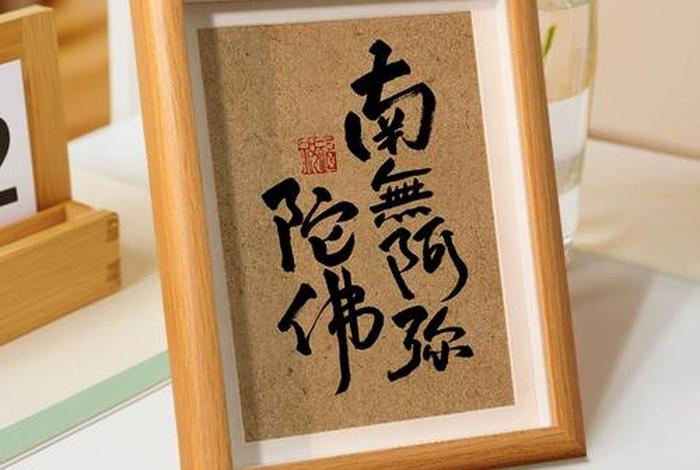 南無阿弥
陀佛
2